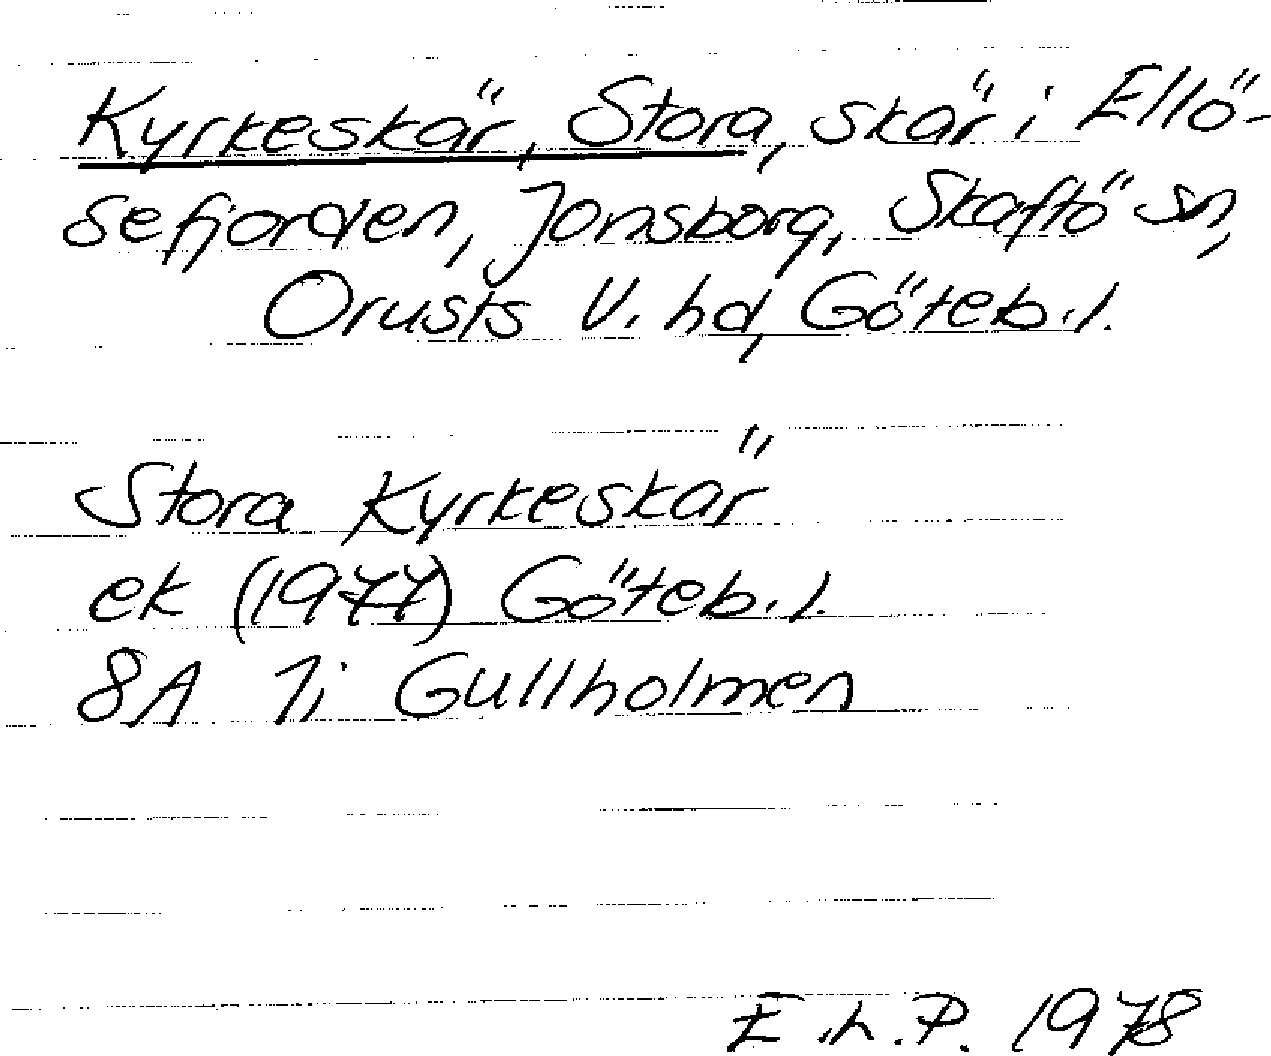 Kyrkeskär, Stora, skär i Ellö-
sefjorden, Jonsborg, Skaftö sn,
Orusts V. hd, Göteb. l.
Stora Kyrkeskär
ek (1977) Göteb. l.
8A 7i Gullholmen
E.L.P. 1978